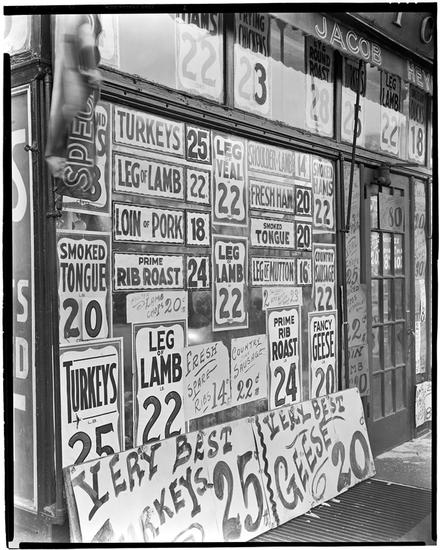 HAMS
22
FRYING
CHICKENS
3
JACOB
HEY
LEG
LAMB
22
18
SPECI
TURKEYS 25
LEG OF LAMB 22
LOIN OF PORK 18
PRIME
RIB ROAST 24
LEG
VEAL
22
LEG
LAMB
22
SHOULDER-LAMB 14
FRESH HAM 20
SMOKED
TONGUE 20
LEG OF MUTTON 16
SMOKED
HAMS
22
COUNTRY
SAUSAGE
22
SMOKED
TONGUE
LB
20
LAMB CHOPS 20¢
23
TURKEYS
LB
25
LEG
OF
LAMB
22
FRESH
SPARE
RIBS 14¢
COUNTRY
SAUSAGE
22¢
PRIME
RIB
ROAST
24
FANCY
GEESE
20
VERY BEST
TURKEYS. 25
VERY BEST
GEESE 20
80